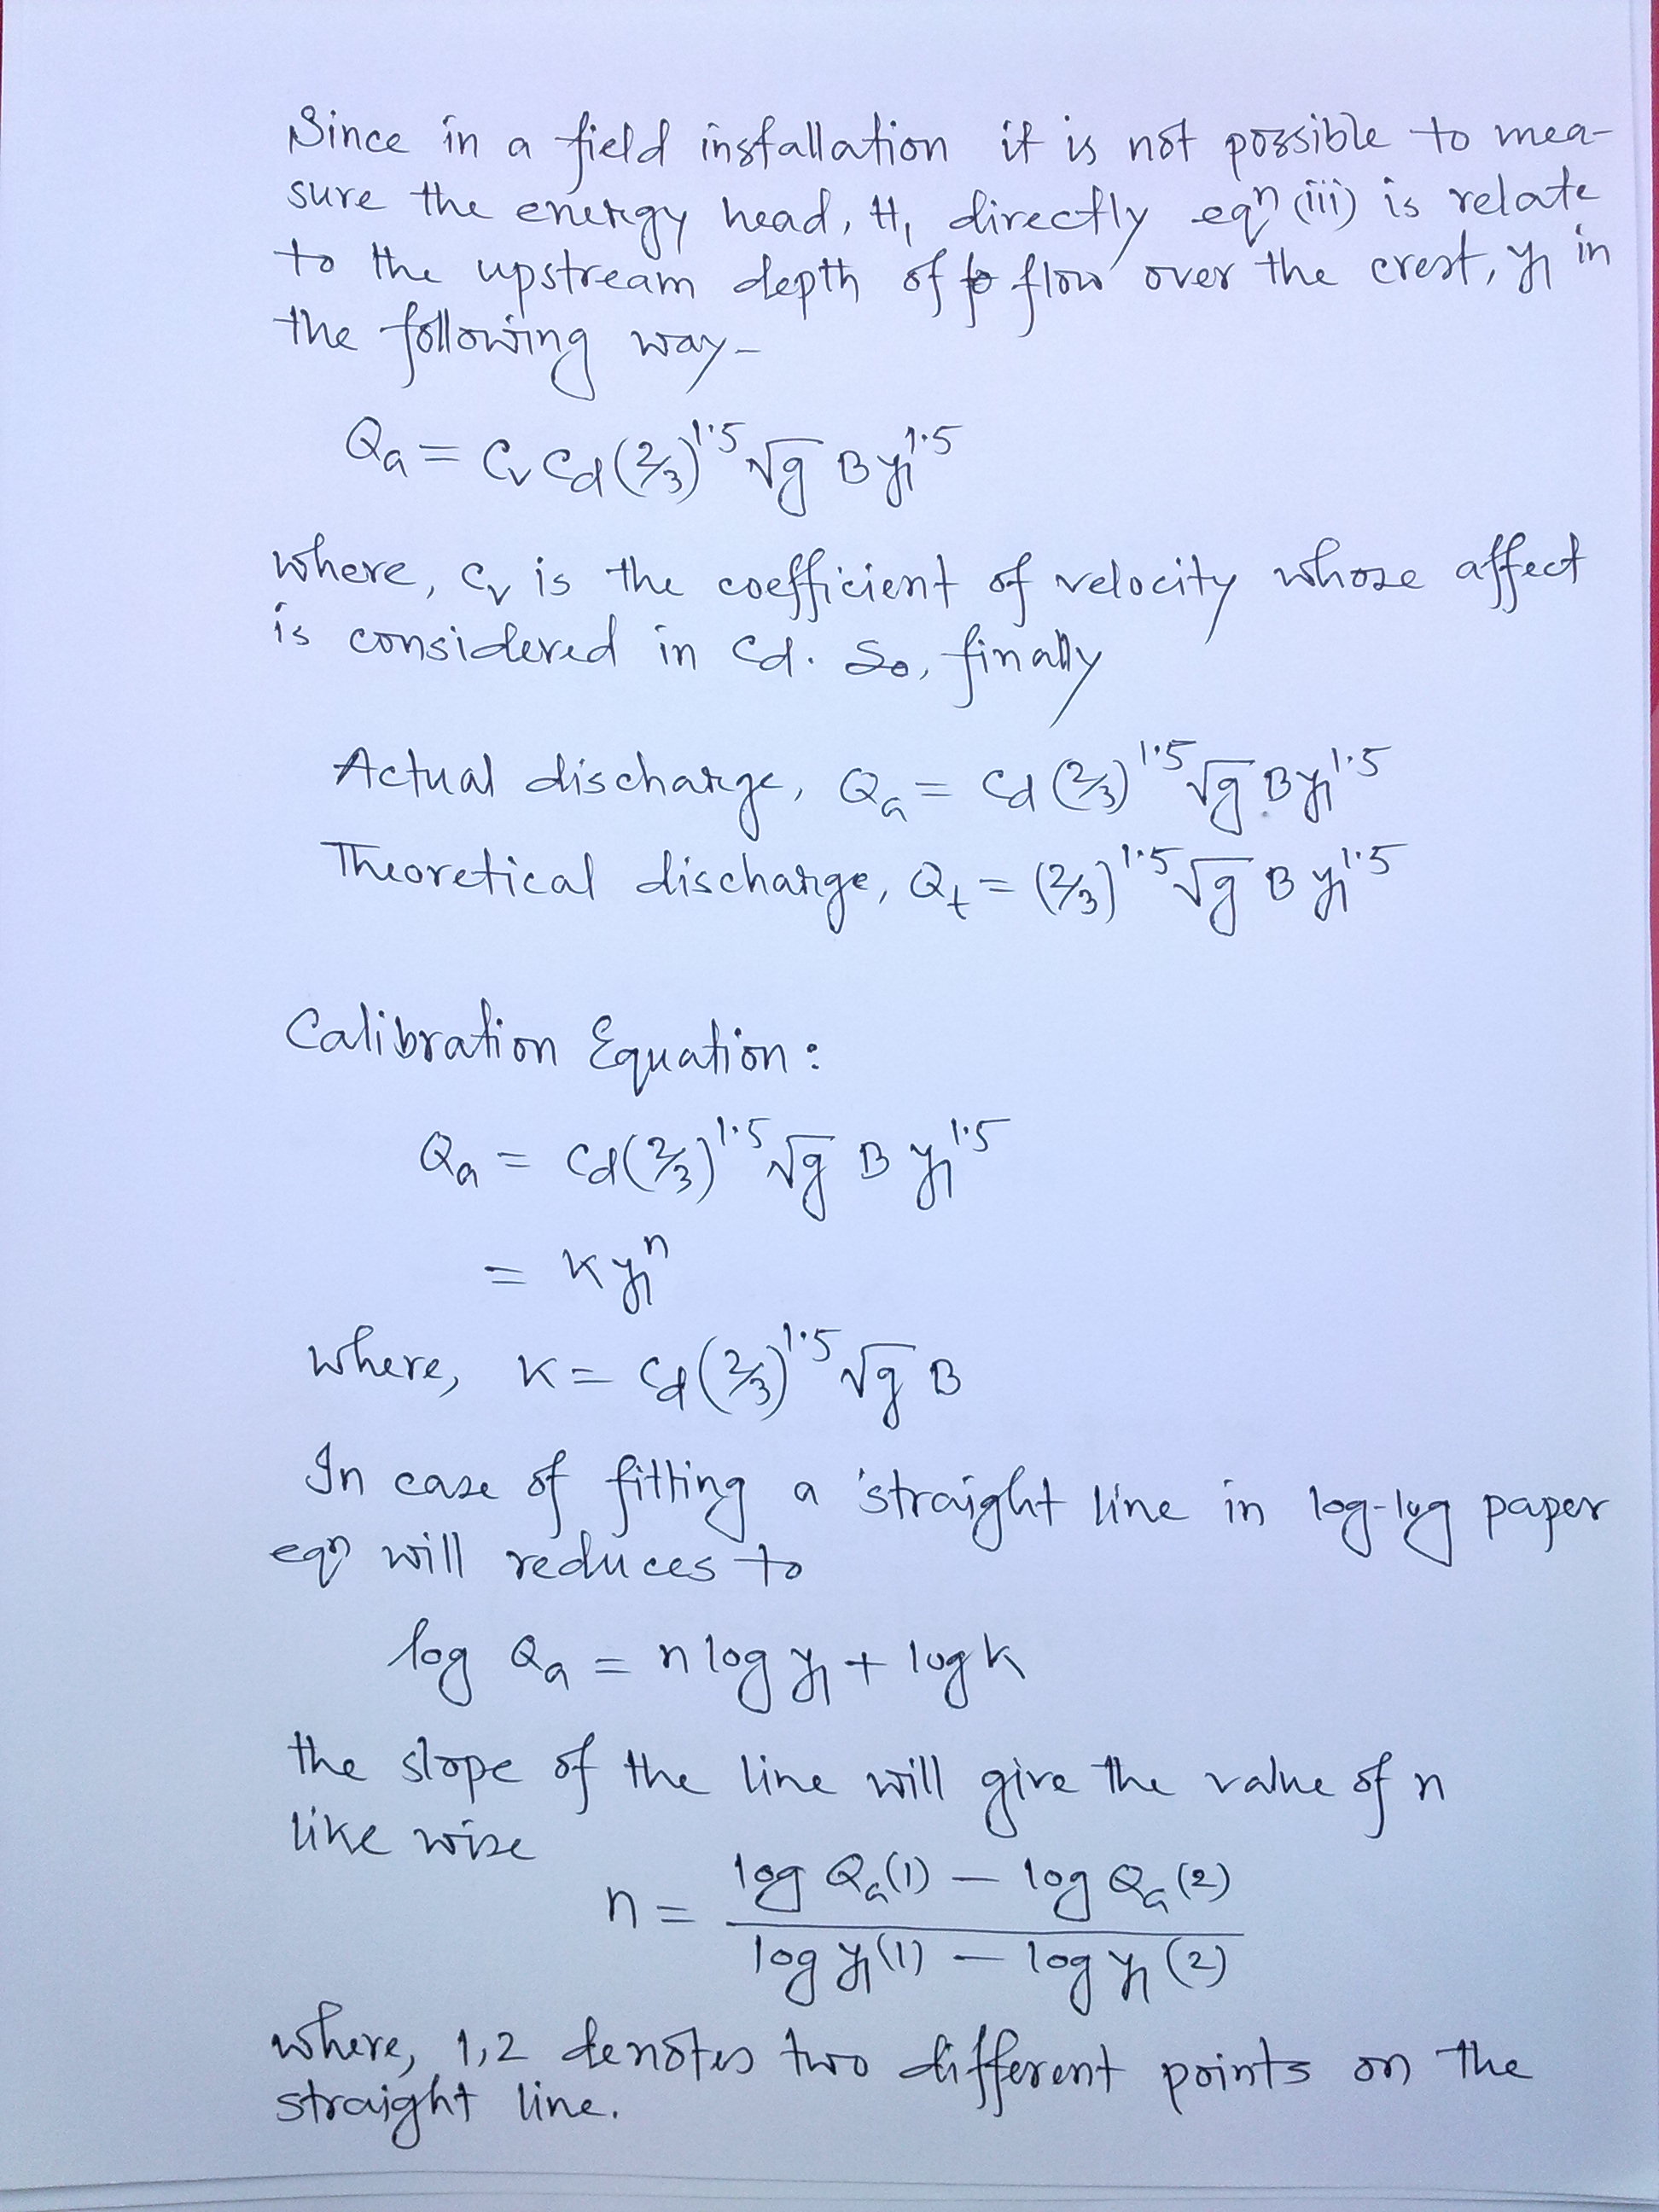 Since in a field installation it is not possible to mea-
sure the energy head, H₁ directly eqⁿ (iii) is relate
to the upstream depth of flow over the crest, y₁ in
the following way-
Qa = Cv Cd (2/3)^1.5 √g B y₁^1.5
where, Cv is the coefficient of velocity whose affect
is considered in Cd. So, finally
Actual discharge, Qa = Cd (2/3)^1.5 √g B y₁^1.5
Theoretical discharge, Qt = (2/3)^1.5 √g B y₁^1.5
Calibration Equation:
Qa = Cd (2/3)^1.5 √g B y₁^1.5
= K y₁^n
where, K = Cd (2/3)^1.5 √g B
In case of fitting a straight line in log-log paper
eqn will reduces to
log Qa = n log y₁ + log K
the slope of the line will give the value of n
like wise
n = (log Qa(1) - log Qa(2)) / (log y₁(1) - log y₁(2))
where, 1,2 denotes two different points on the
straight line.